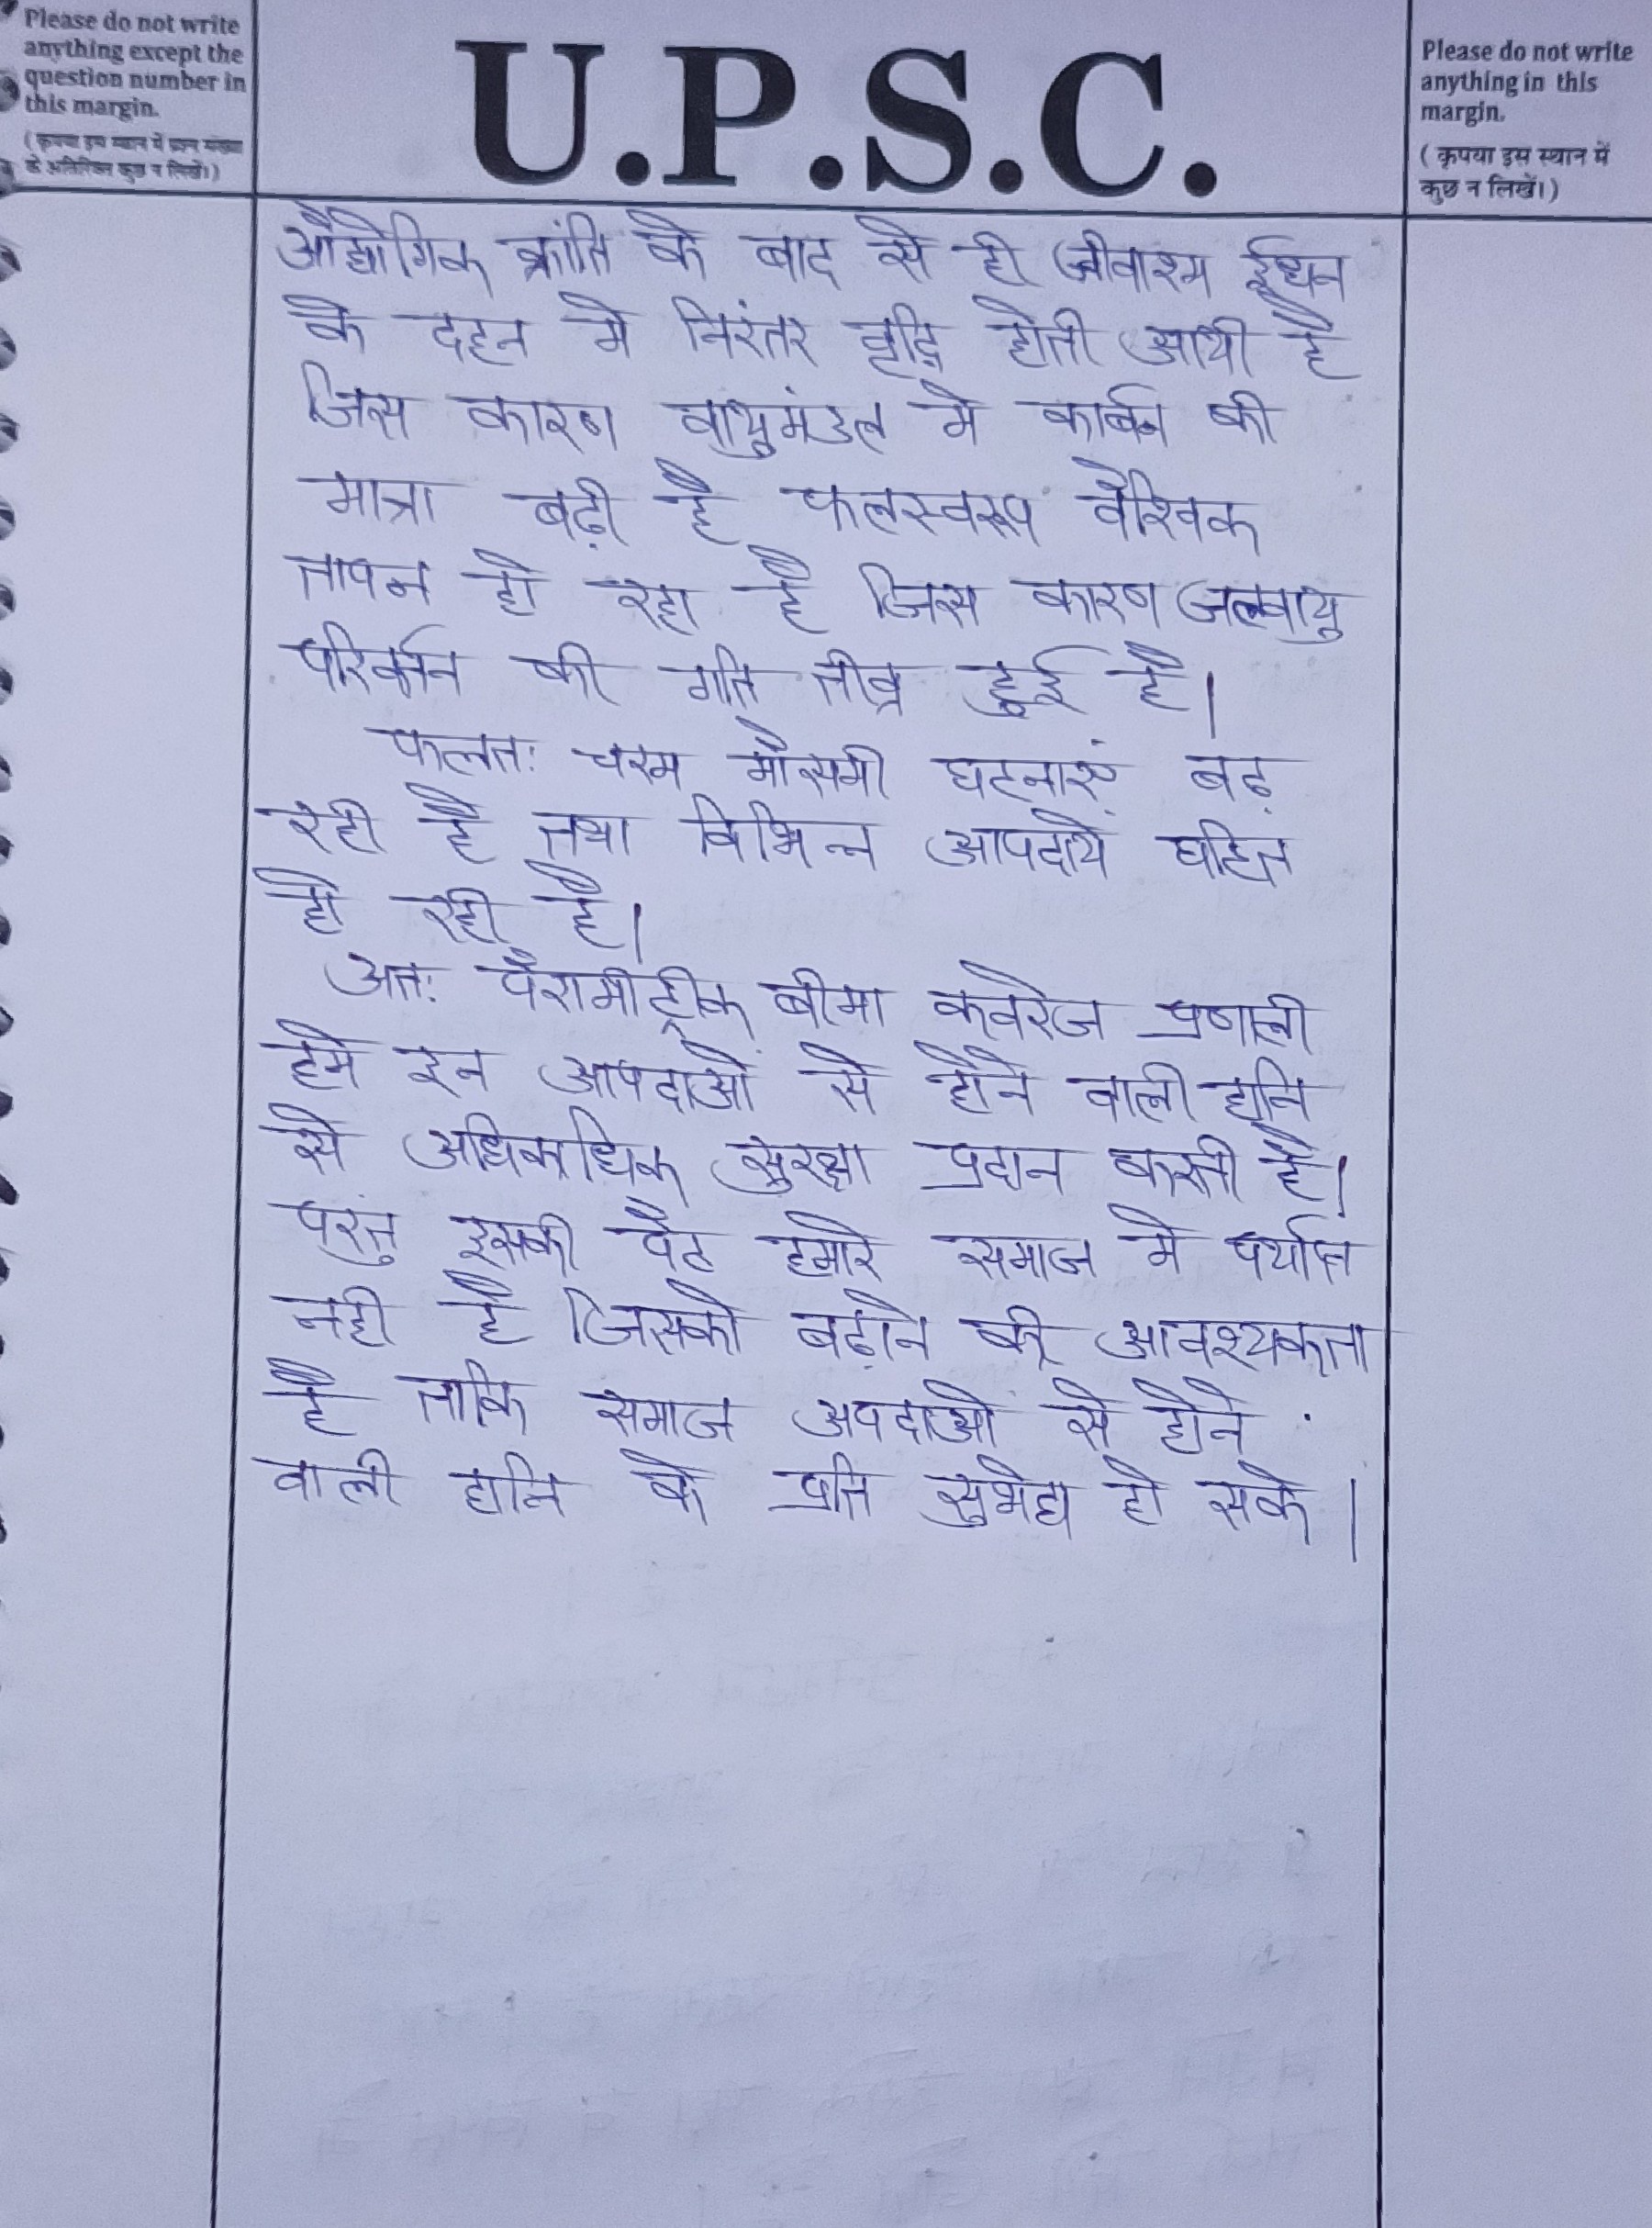 Please do not write
anything except the
question number in
this margin.
(कृपया इस स्थान में प्रश्न संख्या
के अतिरिक्त कुछ न लिखें।)
U.P.S.C.
Please do not write
anything in this
margin.
(कृपया इस स्थान में
कुछ न लिखें।)
औद्योगिक क्रांति के बाद से ही जीवाश्म ईंधन
के दहन मे निरंतर वृद्धि होती आयी है
जिस कारण वायुमंडल मे कार्बन की
मात्रा बढ़ी है फलस्वरूप वैश्विक
तापन हो रहा है जिस कारण जलवायु
परिवर्तन की गति तीव्र हुई है।
फलतः चरम मौसमी घटनाएं बढ़
रही है तथा विभिन्न आपदाये घटित
हो रही है।
अतः पैरामीट्रीक बीमा कवरेज प्रणाली
हमे इन आपदाओं से होने वाली हानि
से अधिकाधिक सुरक्षा प्रदान करती है।
परंतु इसकी पैठ हमारे समाज मे पर्याप्त
नही है जिसको बढ़ाने की आवश्यकता
है ताकि समाज अपदाओं से होने
वाली हानि के प्रति सुभेद्य हो सके।